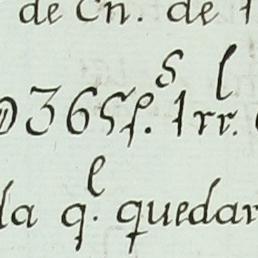 de Cn. de 1
365 f.s 1 rr.l
la q.l quedar